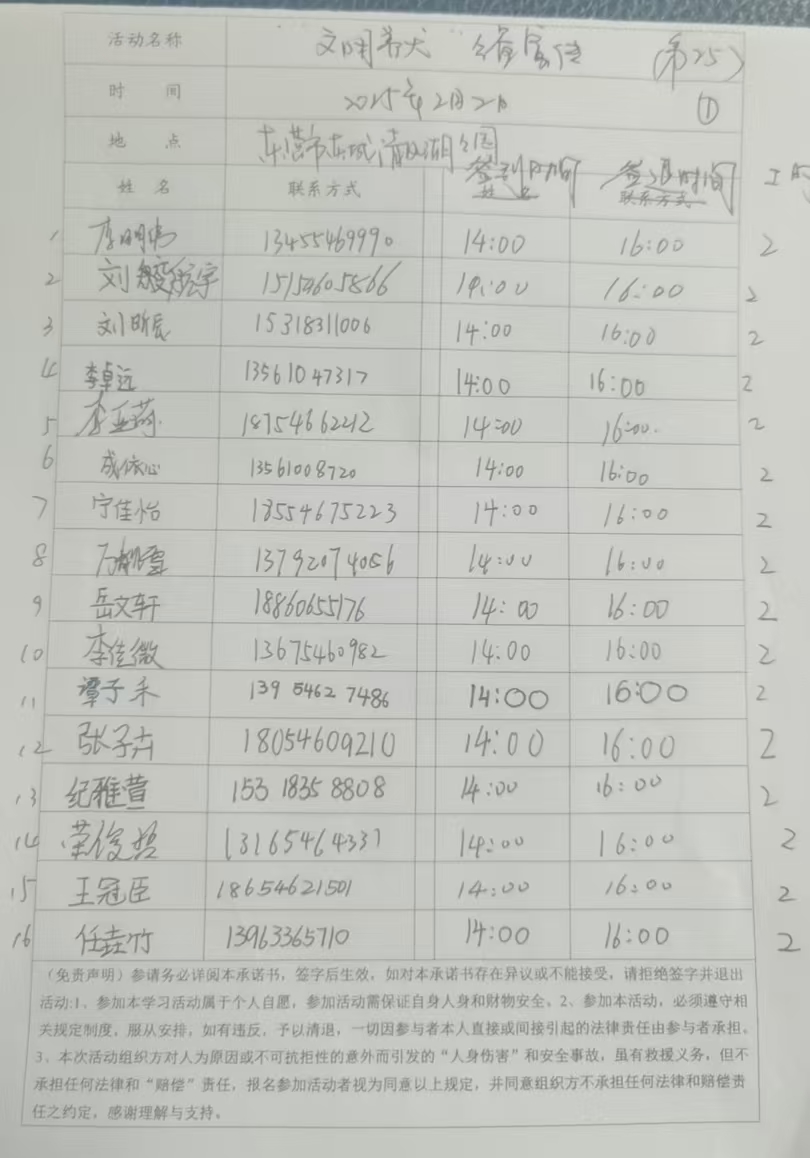 活动名称 文明 宣传 (第25)
时 间 2025年2月2日 ①
地 点 东营市东城清风湖公园
姓 名 联系方式 签到时间 签退时间
1 李明伟 13455469990 14:00 16:00 2
2 刘 宇 15154605866 14:00 16:00 2
3 刘昕辰 15318311006 14:00 16:00 2
4 李卓远 13561047317 14:00 16:00 2
5 李亚 18754662212 14:00 16:00. 2
6 成依心 13561008720 14:00 16:00 2
7 宁佳怡 18554675223 14:00 16:00 2
8 13792074056 14:00 16:00 2
9 岳文轩 18860655176 14:00 16:00 2
10 李佳薇 13675460982 14:00 16:00 2
11 谭子禾 139 5462 7486 14:00 16:00 2
12 张子卉 18054609210 14:00 16:00 2
13 纪雅萱 153 1835 8808 14:00 16:00 2
14 荣俊哲 13165464337 14:00 16:00 2
15 王冠臣 18654621501 14:00 16:00 2
16 任垚竹 13963365710 14:00 16:00 2
（免责声明）参请务必详阅本承诺书，签字后生效，如对本承诺书存在异议或不能接受，请拒绝签字并退出
活动:1、参加本学习活动属于个人自愿，参加活动需保证自身人身和财物安全。2、参加本活动，必须遵守相
关规定制度，服从安排，如有违反，予以清退，一切因参与者本人直接或间接引起的法律责任由参与者承担。
3、本次活动组织方对人为原因或不可抗拒性的意外而引发的“人身伤害”和安全事故，虽有救援义务，但不
承担任何法律和“赔偿”责任，报名参加活动者视为同意以上规定，并同意组织方不承担任何法律和赔偿责
任之约定，感谢理解与支持。